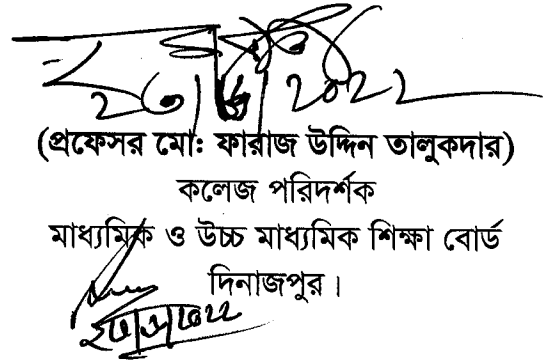 (প্রফেসর মো: ফারাজ উদ্দিন তালুকদার)
কলেজ পরিদর্শক
মাধ্যমিক ও উচ্চ মাধ্যমিক শিক্ষা বোর্ড
দিনাজপুর।